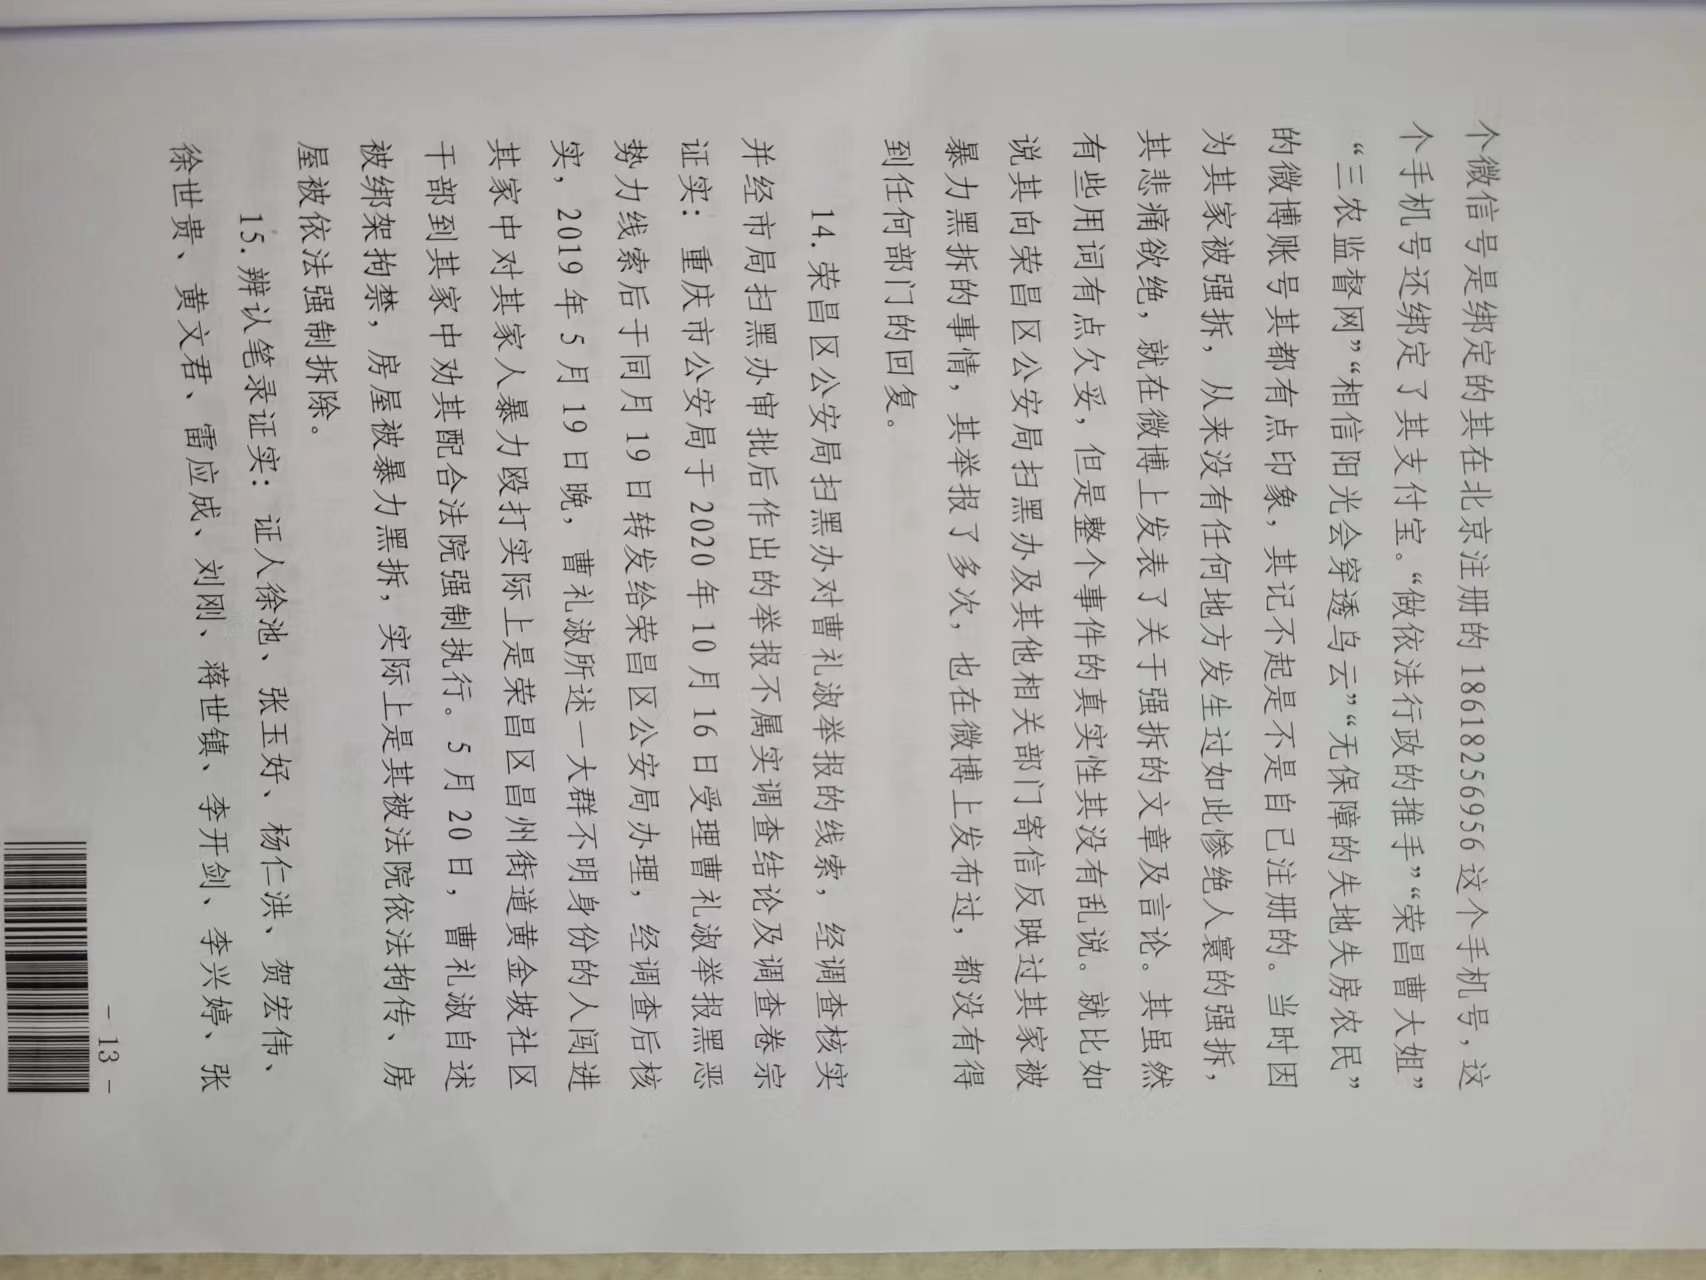 个微信号是绑定的其在北京注册的 18618256956 这个手机号，这
个手机号还绑定了其支付宝。“做依法行政的推手”“荣昌曹大姐”
“三农监督网”“相信阳光会穿透乌云”“无保障的失地失房农民”
的微博账号其都有点印象，其记不起是不是自己注册的。当时因
为其家被强拆，从来没有任何地方发生过如此惨绝人寰的强拆，
其悲痛欲绝，就在微博上发表了关于强拆的文章及言论。其虽然
有些用词有点欠妥，但是整个事件的真实性其没有乱说。就比如
说其向荣昌区公安局扫黑办及其他相关部门寄信反映过其家被
暴力黑拆的事情，其举报了多次，也在微博上发布过，都没有得
到任何部门的回复。
14. 荣昌区公安局扫黑办对曹礼淑举报的线索，经调查核实
并经市局扫黑办审批后作出的举报不属实调查结论及调查卷宗
证实：重庆市公安局于 2020 年 10 月 16 日受理曹礼淑举报黑恶
势力线索后于同月 19 日转发给荣昌区公安局办理，经调查后核
实，2019 年 5 月 19 日晚，曹礼淑所述一大群不明身份的人闯进
其家中对其家人暴力殴打实际上是荣昌区昌州街道黄金坡社区
干部到其家中劝其配合法院强制执行。5 月 20 日，曹礼淑自述
被绑架拘禁，房屋被暴力黑拆，实际上是其被法院依法拘传、房
屋被依法强制拆除。
15. 辨认笔录证实：证人徐池、张玉好、杨仁洪、贺宏伟、
徐世贵、黄文君、雷应成、刘刚、蒋世镇、李开剑、李兴婷、张
- 13 -